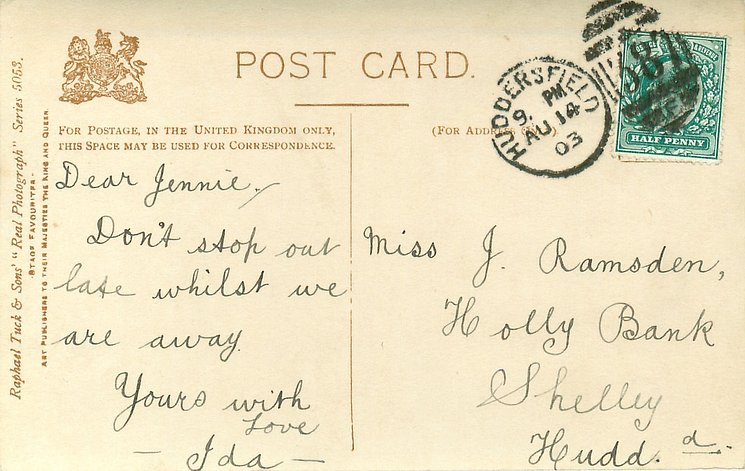 POST CARD.
FOR POSTAGE, IN THE UNITED KINGDOM ONLY,
THIS SPACE MAY BE USED FOR CORRESPONDENCE.
(FOR ADDRESS ONLY.)
Raphael Tuck & Sons' "Real Photograph" Series 5053.
"STAGE FAVOURITES."
ART PUBLISHERS TO THEIR MAJESTIES THE KING AND QUEEN.
HUDDERSFIELD
9. PM
AU 14
03
HALF PENNY
Dear Jennie,
Don't stop out
late whilst we
are away.
Yours with
Love
— Ida —
Miss J. Ramsden,
Holly Bank
Shelley
Hudd. d.